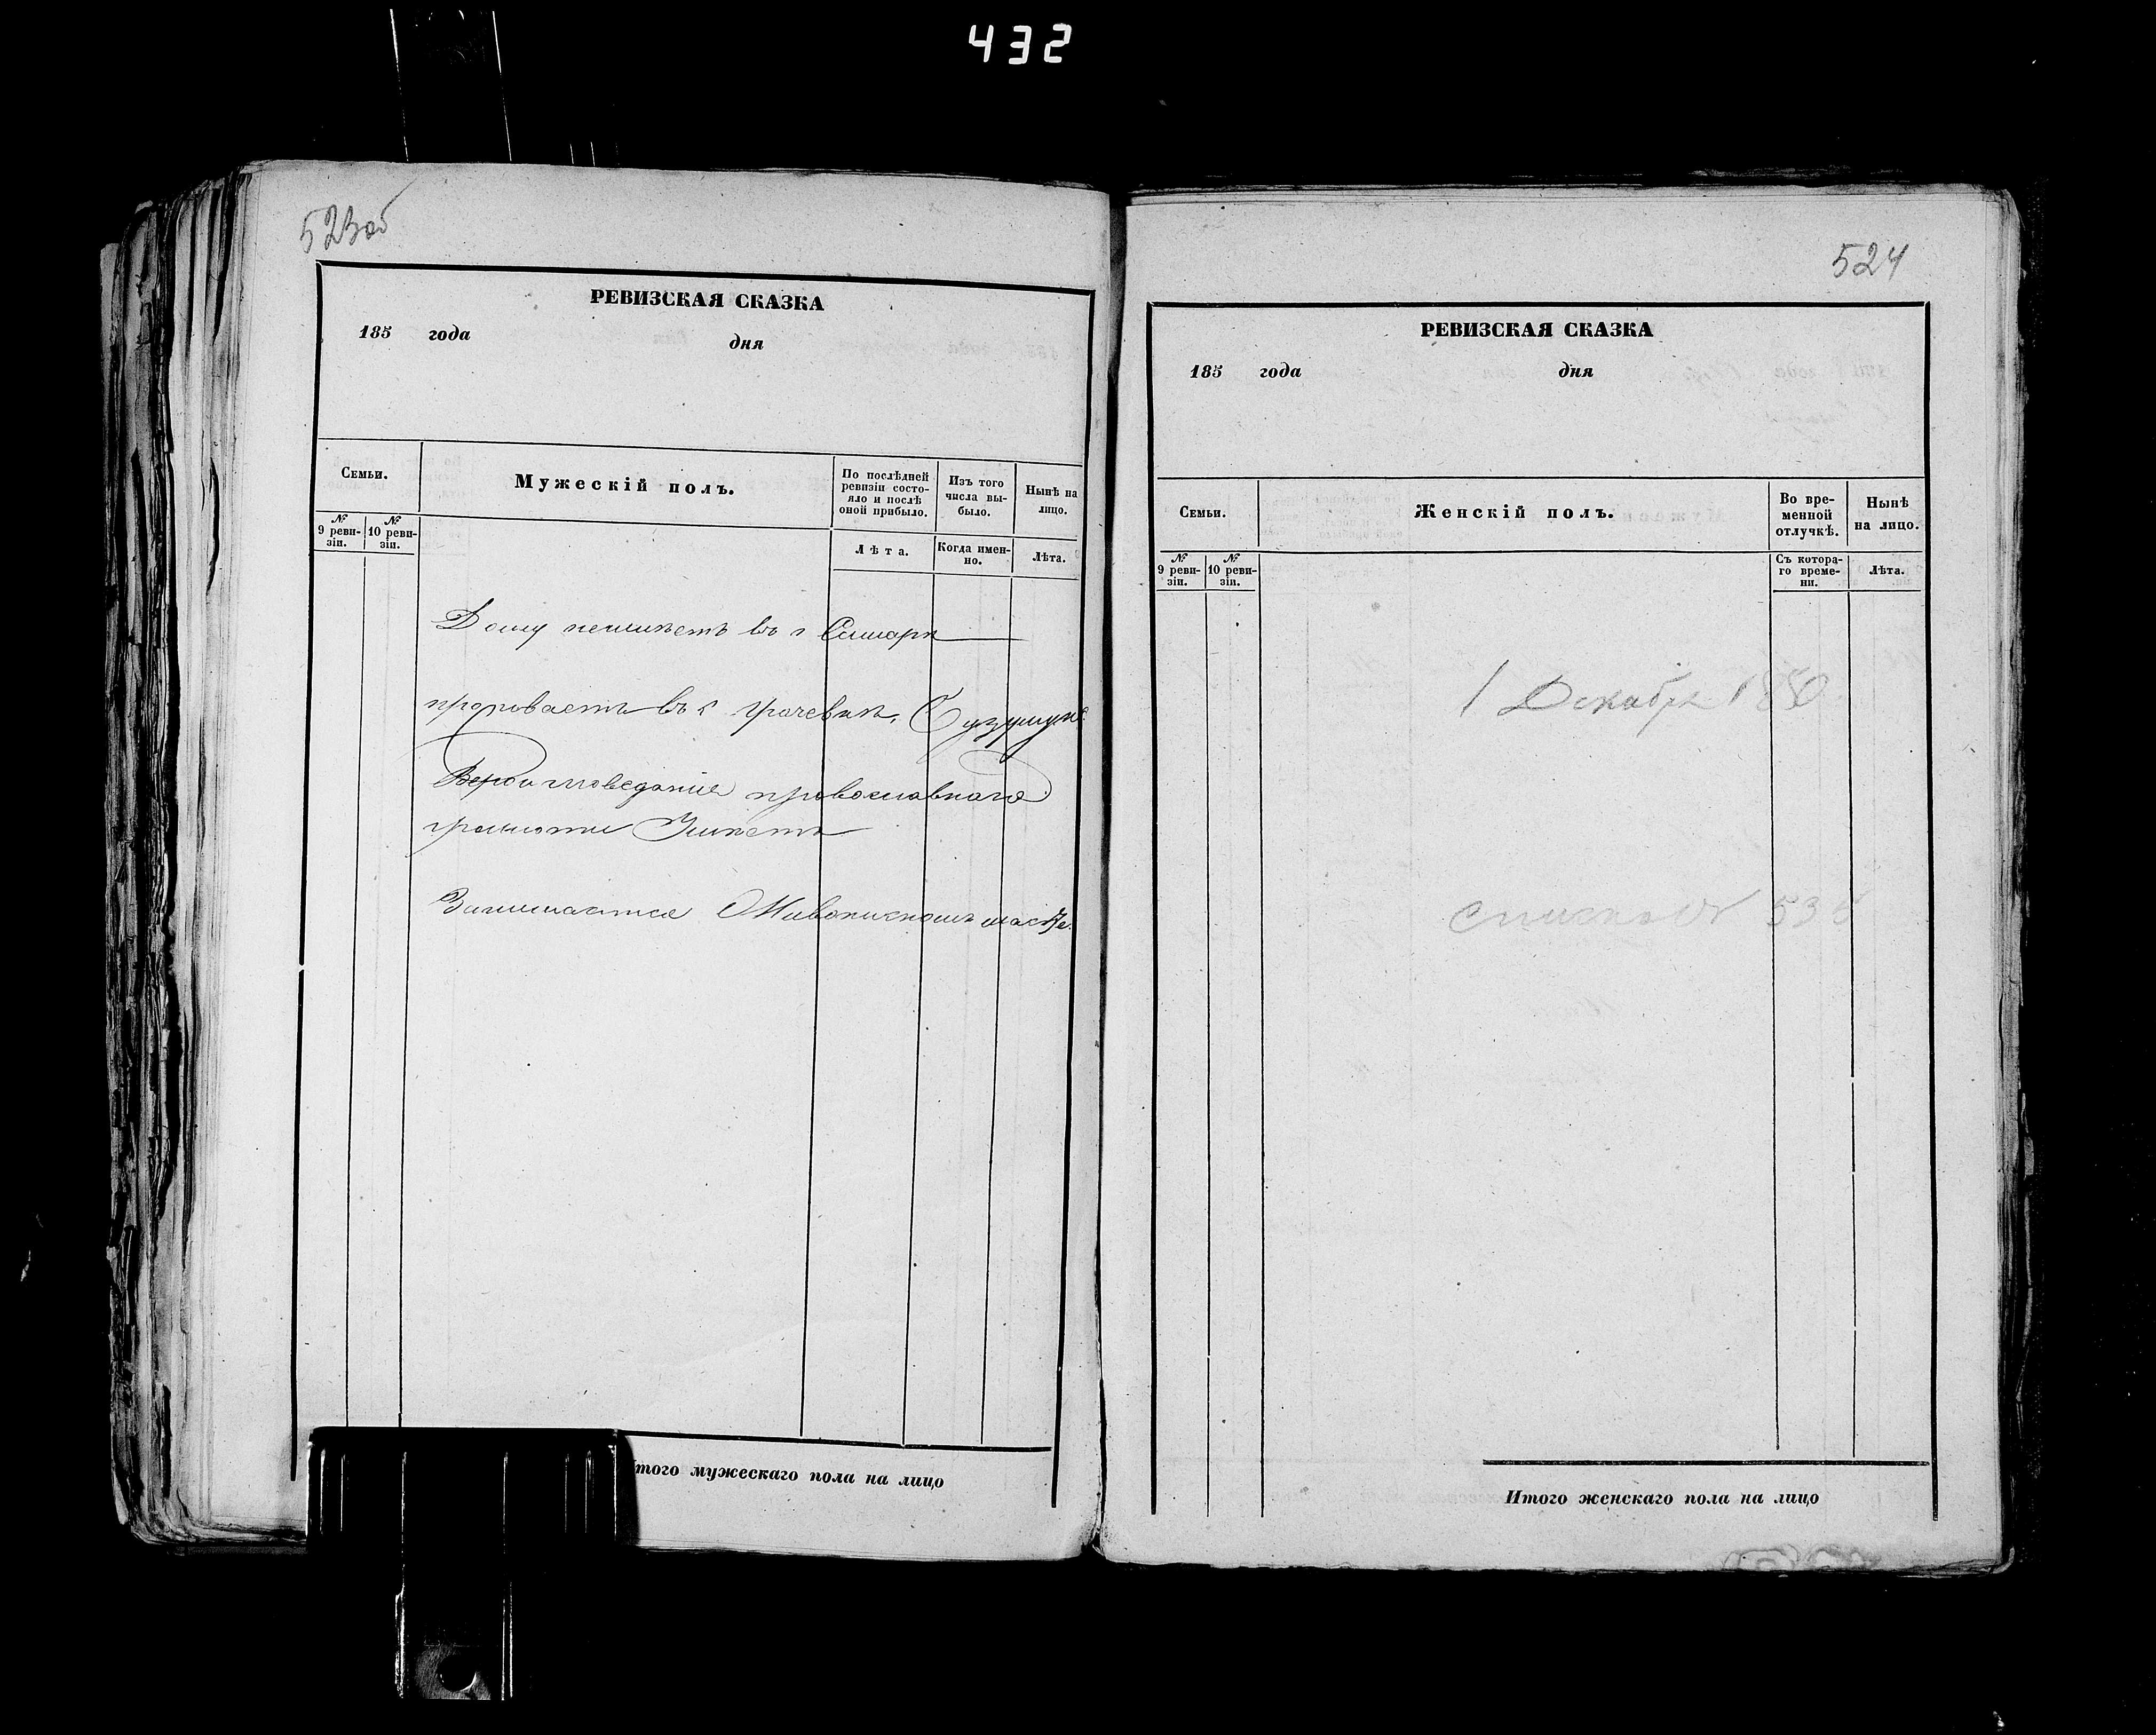 432
523об
РЕВИЗСКАЯ СКАЗКА
185 года дня
Семьи.
Мужескій полъ.
По послѣдней ревизіи состояло и послѣ оной прибыло.
Изъ того числа выбыло.
Нынѣ на лицо.
№ 9 ревизіи.
№ 10 ревизіи.
Лѣта.
Когда именно.
Лѣта.
Дому неимѣетъ въ г Самарѣ
въ с Грачевкѣ, Бузулук
православнаго
грамоти Умѣетъ
Занимается Живописномъ
Итого мужескаго пола на лицо
524
РЕВИЗСКАЯ СКАЗКА
185 года дня
Семьи.
Женскій полъ.
Во временной отлучкѣ.
Нынѣ на лицо.
№ 9 ревизіи.
№ 10 ревизіи.
Съ котораго времени.
Лѣта.
1 Декабря
Итого женскаго пола на лицо